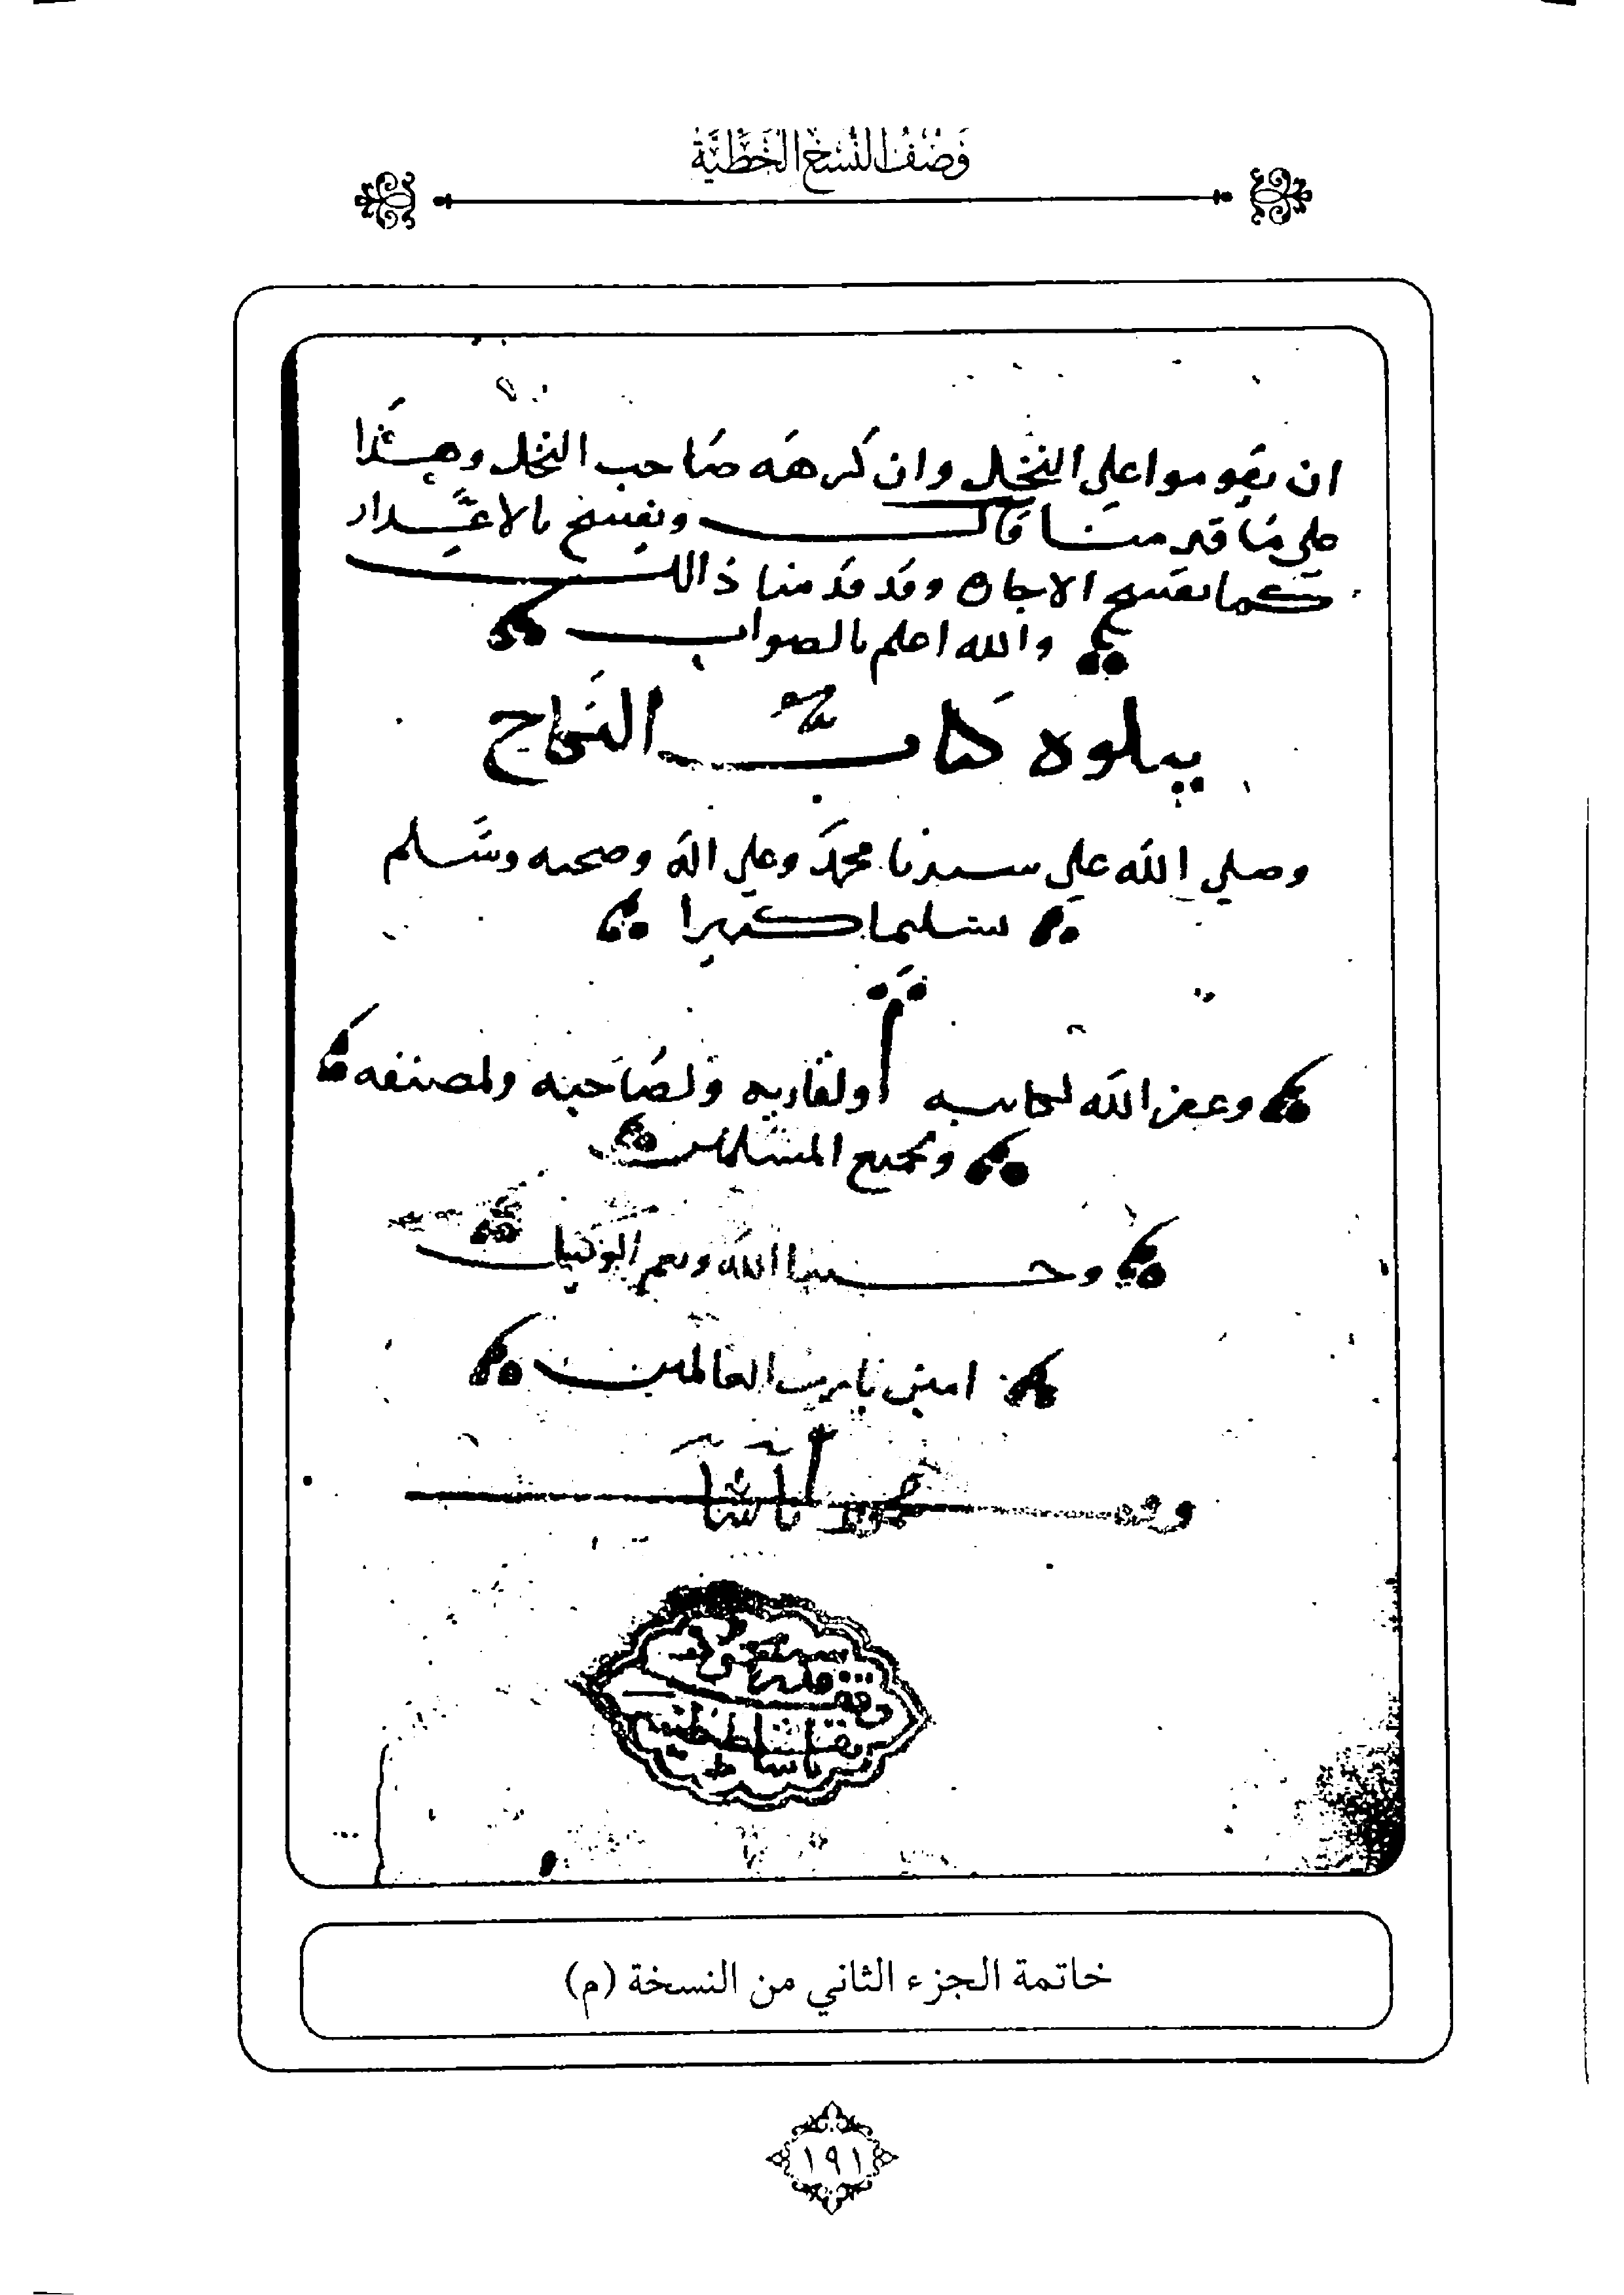 وَصْفُ النُّسَخِ الخَطِّيَّةِ
ان يقوموا علي النخل وان كرهه صاحب النخل وهذا
علي ما قدمنا قال وتفسخ بالاعذار
كما تفسخ الاجارة وقد قدمنا ذالك
والله اعلم بالصواب
يتلوه كتاب النكاح
وصلي الله علي سيدنا محمد وعلي اله وصحبه وسلم
تسليما كثيرا
وغفر الله لكاتبه ولقاريه ولصاحبه ولمصنفه
ولجميع المسلمين
وحسبنا الله ونعم الوكيل
امين يا رب العالمين
وقف محمود باشا
خاتمة الجزء الثاني من النسخة (م)
١٩١